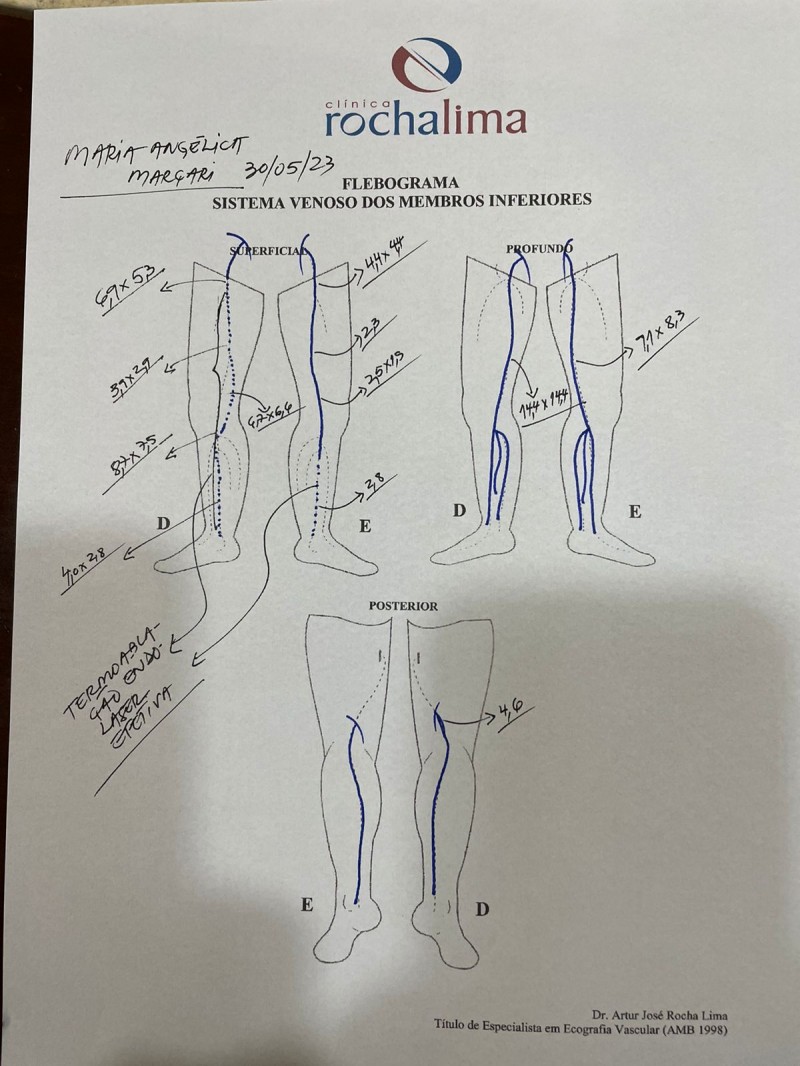 clínica
rochalima
MARIA ANGÉLICA
MARGARI 30/05/23
FLEBOGRAMA
SISTEMA VENOSO DOS MEMBROS INFERIORES
SUPERFICIAL
PROFUNDO
4,4 x 4,4
2,3
2,5 x 1,5
8,7 x 7,5
2,8
4,0 x 2,8
7,1 x 8,3
14,4 x 14,4
D
E
D
E
TERMOABLA-
ÇÃO ENDO-
LASER
EFETIVA
POSTERIOR
4,6
E
D
Dr. Artur José Rocha Lima
Título de Especialista em Ecografia Vascular (AMB 1998)